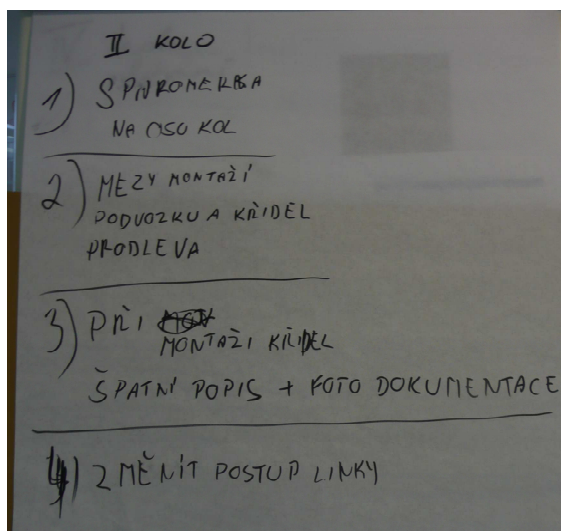 II KOLO
1)
NA OSU KOL
2) MEZY MONTAŽÍ
PODVOZKU A KŘIDEL
PRODLEVA
3) PŘI
MONTAŽI KŘIDEL
ŠPATNÍ POPIS + FOTO DOKUMENTACE
4) ZMĚNÍT POSTUP LINKY